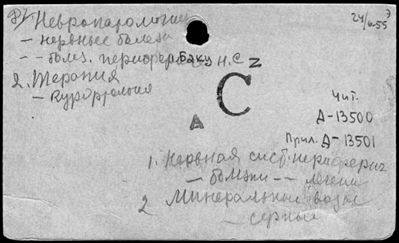 Невропатология
24/VI-55
- нервные болезн
- - болез. периферо Баку н.с Z
2. Терапия
- Курортология
C
A
Чит.
Д-13500
Прил. Д-13501
1. Нервная сист. периферич
- болезни - - лечени
2 Минеральные воды
- серные